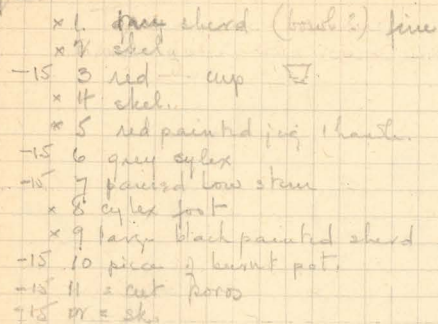 x 1. sherd (bowl?) fine
x 2 skel
-15 3 red cup
x 4 skel.
x 5 red painted jug 1 handle.
-15 6 grey cylex
-15 7 low stem
x 8 cylex foot
x 9 large black painted sherd
-15 10 piece of burnt pot.
-15 11 cut poros
-15 sk.